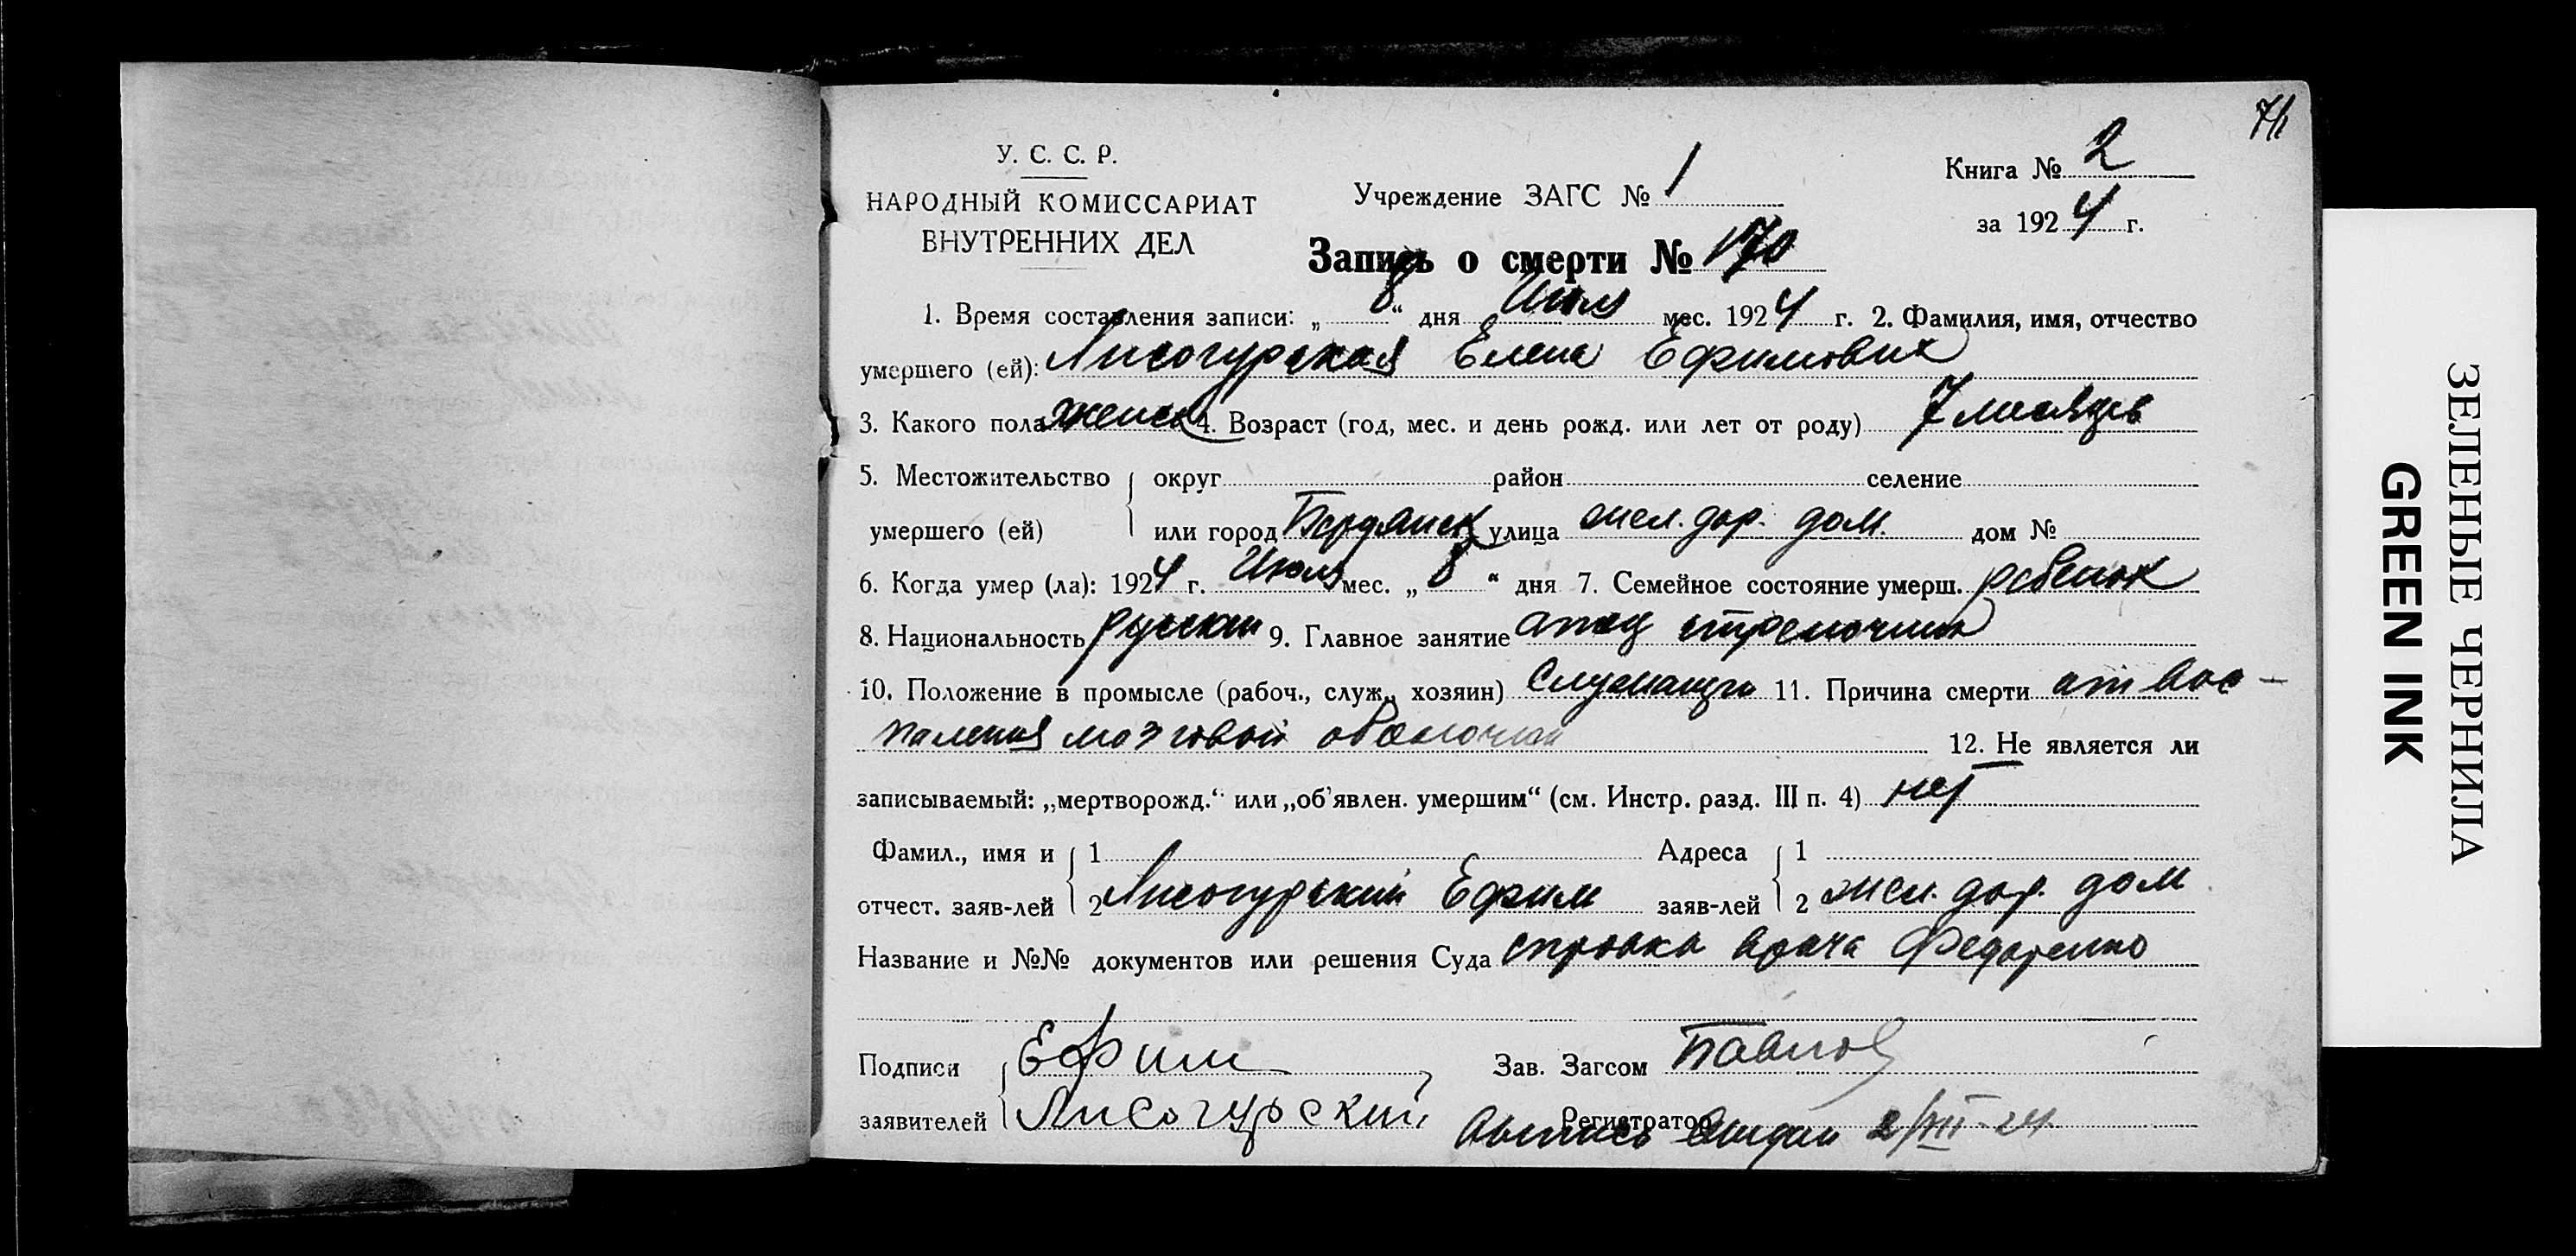 У. С. С. Р.
НАРОДНЫЙ КОМИССАРИАТ
ВНУТРЕННИХ ДЕЛ
Учреждение ЗАГС № 1
Книга № 2
за 1924 г.
Запись о смерти № 170
1. Время составления записи: „8“ дня Июля мес. 1924 г. 2. Фамилия, имя, отчество
умершего (ей): Лисогурская Елена Ефимович
3. Какого пола женск 4. Возраст (год, мес. и день рожд. или лет от роду) 7 месяцев
5. Местожительство округ район селение
умершего (ей) или город Бердянск улица жел. дор. дом. дом №
6. Когда умер (ла): 1924 г. Июля мес. „8“ дня 7. Семейное состояние умерш. ребенок
8. Национальность русская 9. Главное занятие отец стрелочник
10. Положение в промысле (рабоч., служ., хозяин) Служащий 11. Причина смерти от вос-
паления мозговой оболочки 12. Не является ли
записываемый: „мертворожд.“ или „об’явлен. умершим“ (см. Инстр. разд. III п. 4) нет
Фамил., имя и 1 Адреса 1
отчест. заяв-лей 2 Лисогурский Ефим заяв-лей 2 жел. дор. дом
Название и №№ документов или решения Суда справка врача Федоренко
Подписи Ефим Зав. Загсом Павлов
заявителей Лисогурский Регистратор
2/VIII-24.
ЗЕЛЕНЫЕ ЧЕРНИЛА
GREEN INK